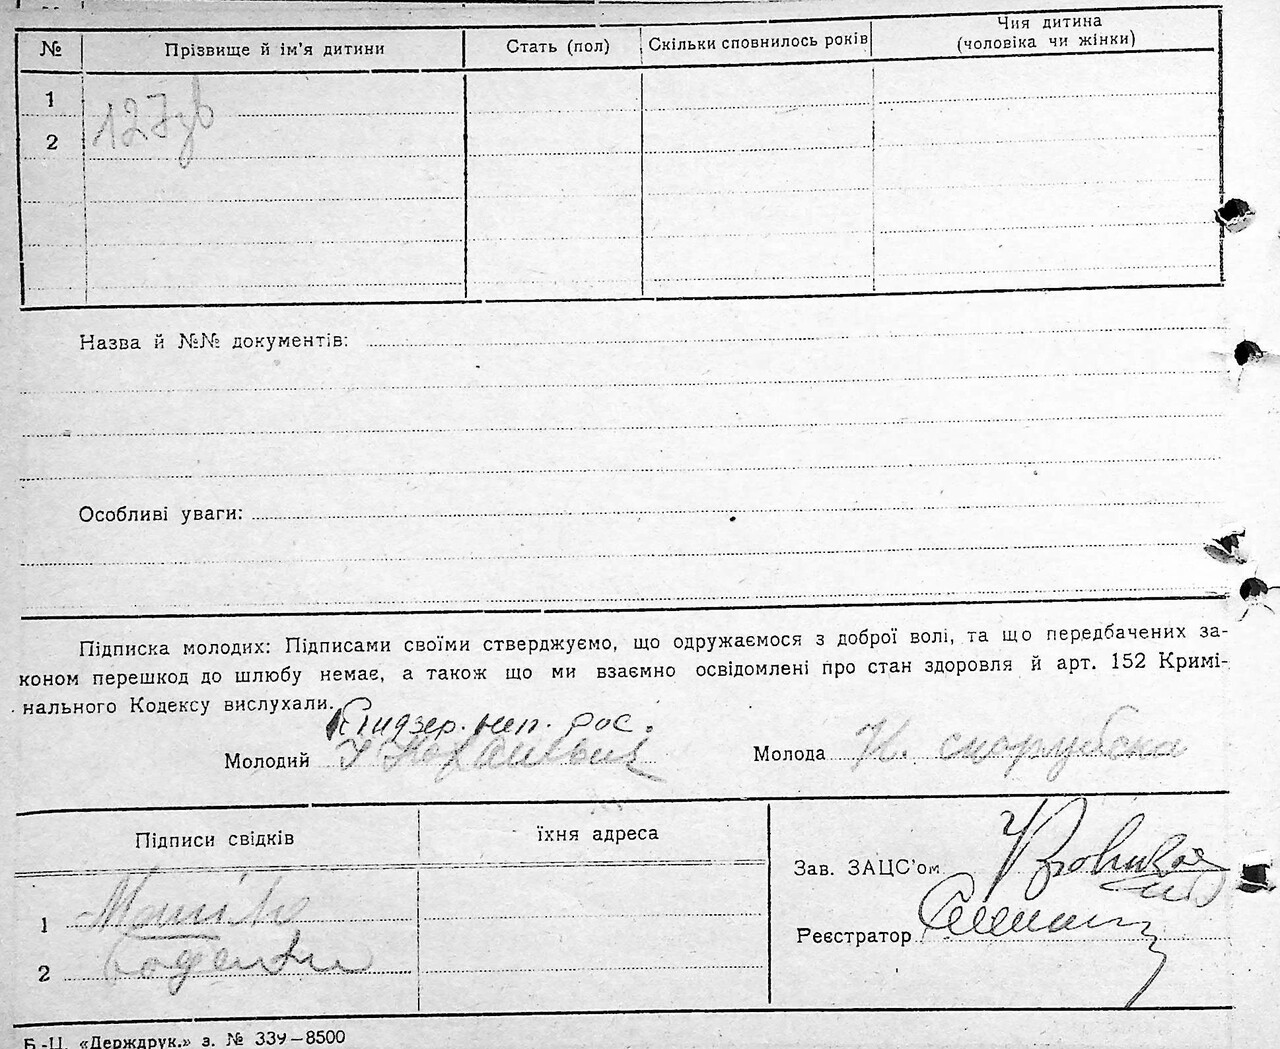 № Прізвище й ім'я дитини Стать (пол) Скільки сповнилось років Чия дитина (чоловіка чи жінки)
1
2
127
Назва й №№ документів:
Особливі уваги:
Підписка молодих: Підписами своїми стверджуємо, що одружаємося з доброї волі, та що передбачених за-
коном перешкод до шлюбу немає, а також що ми взаємно освідомлені про стан здоровля й арт. 152 Кримі-
нального Кодексу вислухали.
Молодий Молода Н. скорубска
Підписи свідків їхня адреса
Зав. ЗАЦС'ом
1
Реєстратор
2
Б.-Ц. «Держдрук.» з. № 339—8500